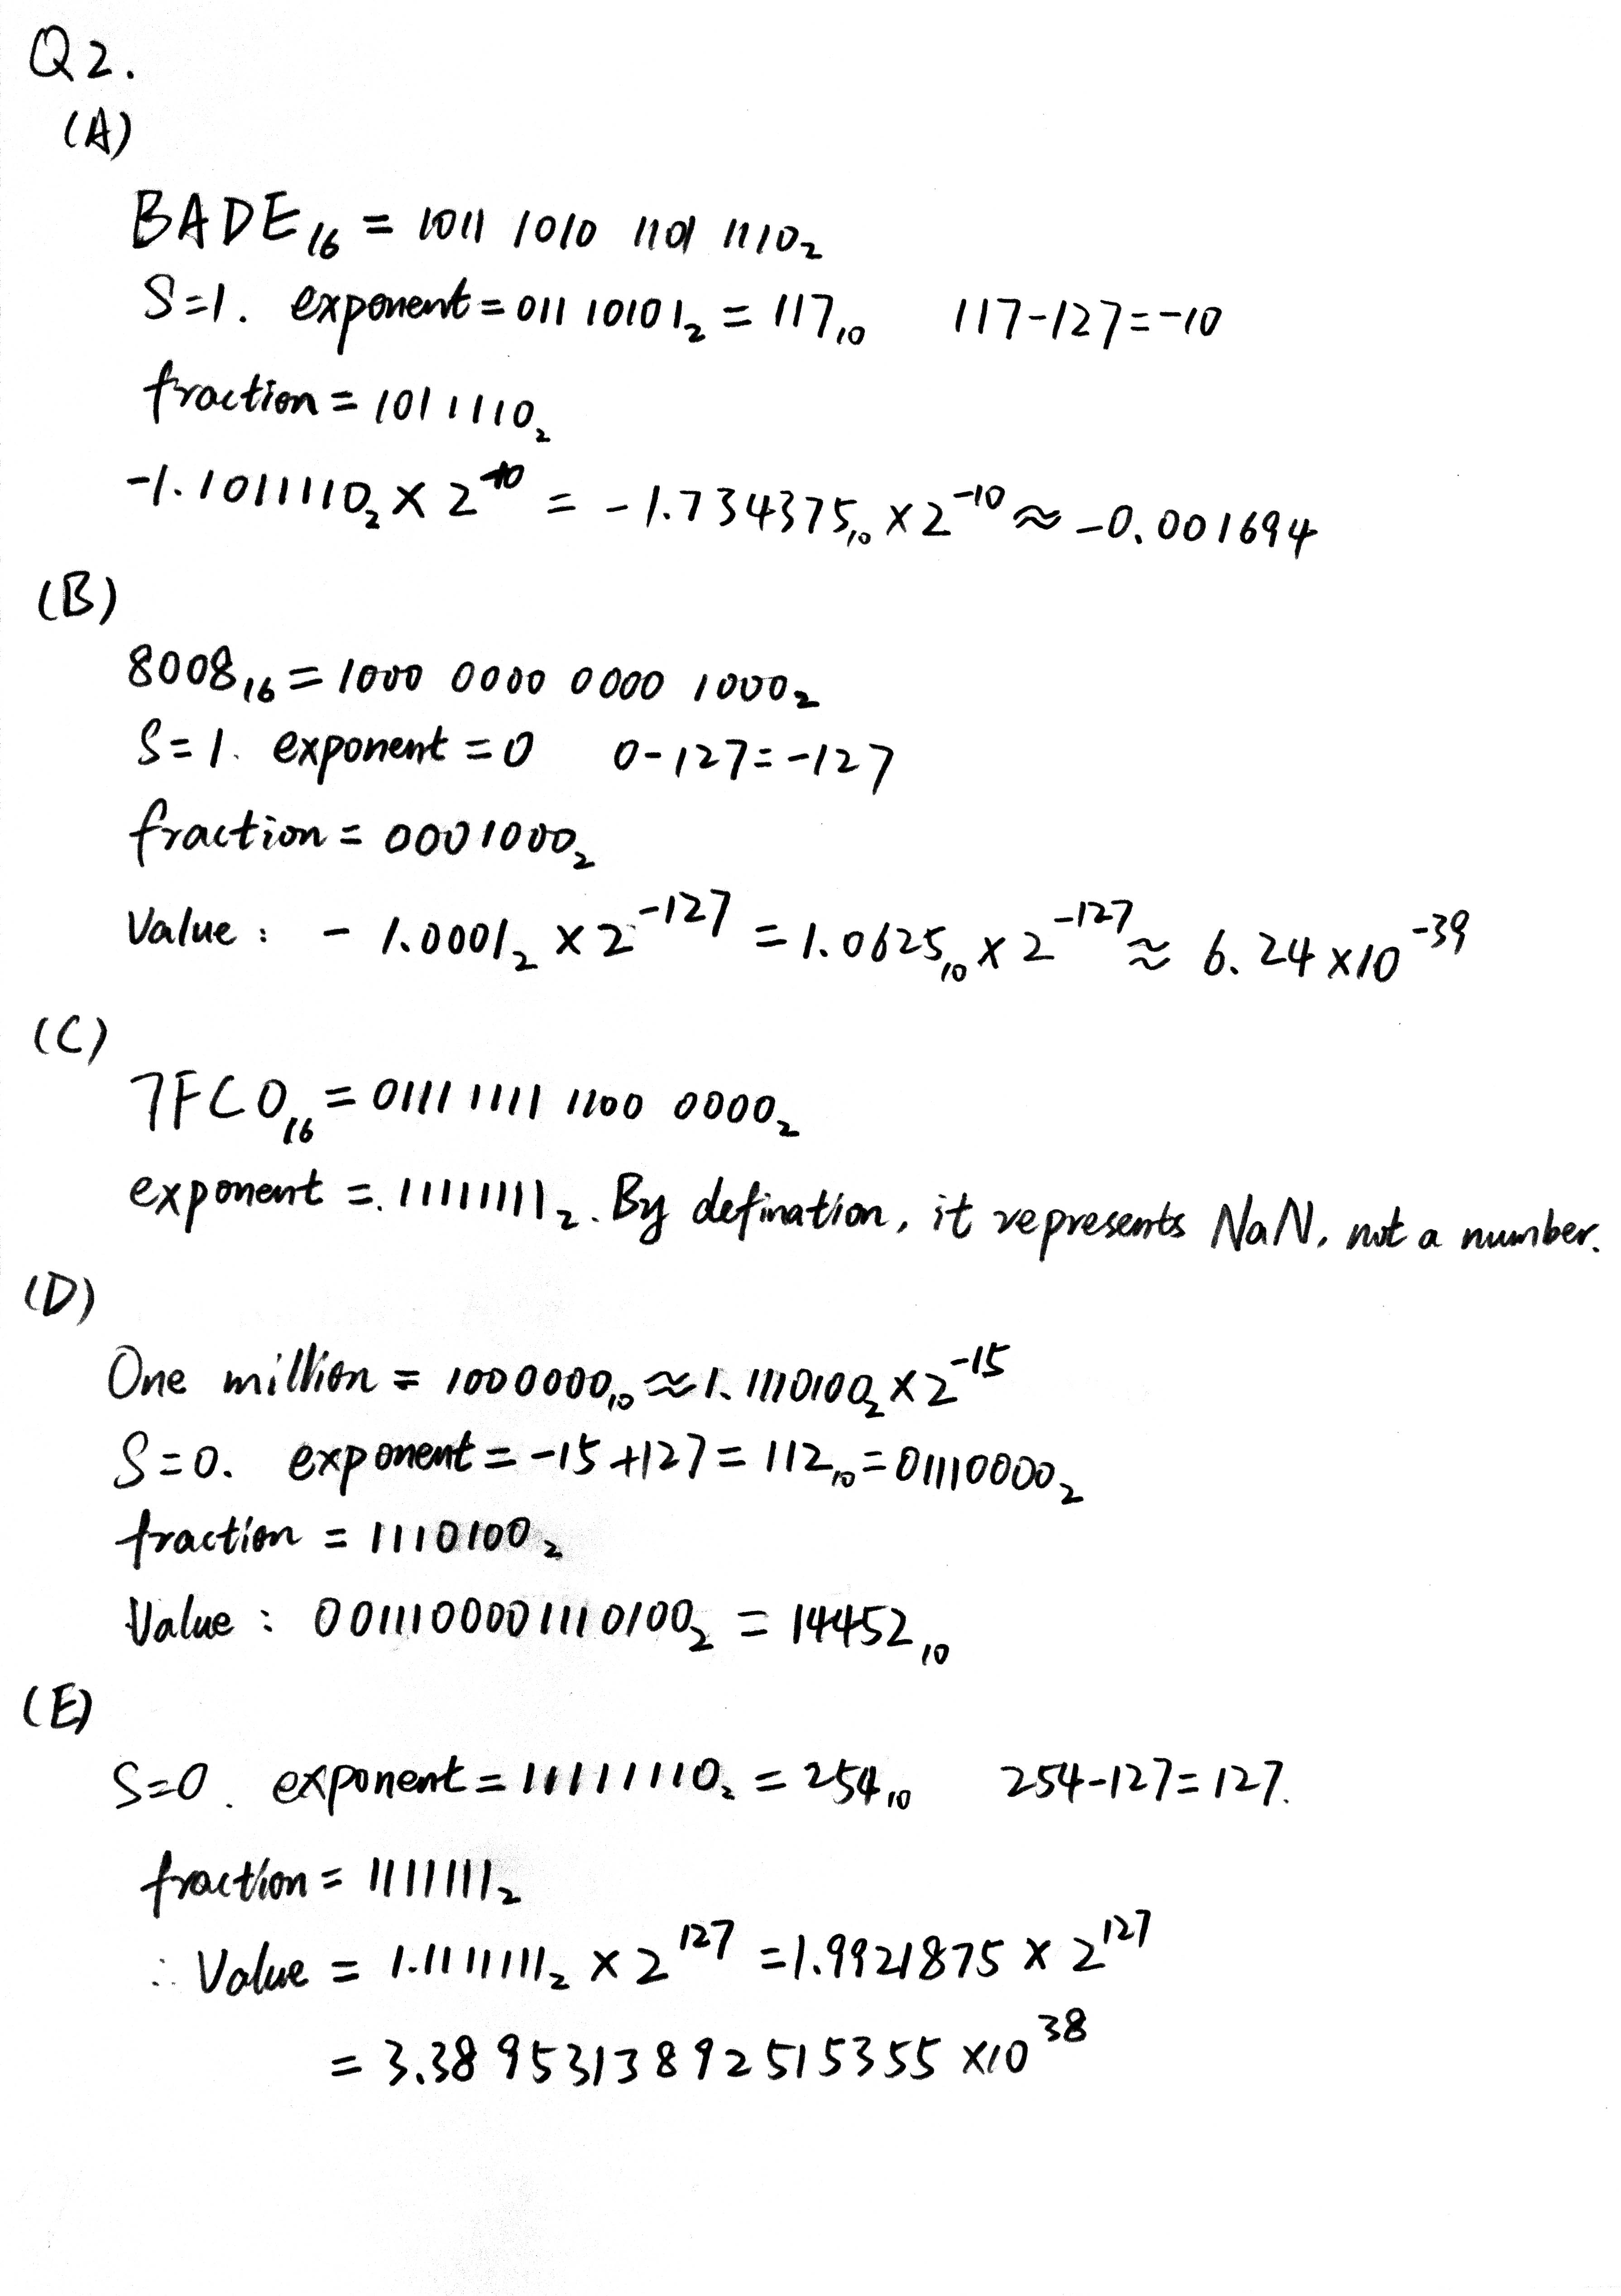 Q2.
(A)
BADE₁₆ = 1011 1010 1101 1110₂
S=1. exponent = 011 10101₂ = 117₁₀ 117-127=-10
fraction = 1011110₂
-1.1011110₂ × 2⁻¹⁰ = -1.734375₁₀ × 2⁻¹⁰ ≈ -0.001694
(B)
8008₁₆ = 1000 0000 0000 1000₂
S=1. exponent = 0 0-127=-127
fraction = 0001000₂
Value: - 1.0001₂ × 2⁻¹²⁷ = 1.0625₁₀ × 2⁻¹²⁷ ≈ 6.24 × 10⁻³⁹
(C)
7FC0₁₆ = 0111 1111 1100 0000₂
exponent = 11111111₂. By defination, it represents NaN, not a number.
(D)
One million = 1000000₁₀ ≈ 1.1110100₂ × 2⁻¹⁵
S=0. exponent = -15+127 = 112₁₀ = 01110000₂
fraction = 1110100₂
Value: 0011100001110100₂ = 14452₁₀
(E)
S=0. exponent = 11111110₂ = 254₁₀ 254-127=127.
fraction = 1111111₂
∴ Value = 1.1111111₂ × 2¹²⁷ = 1.9921875 × 2¹²⁷
= 3.3895313892515355 × 10³⁸